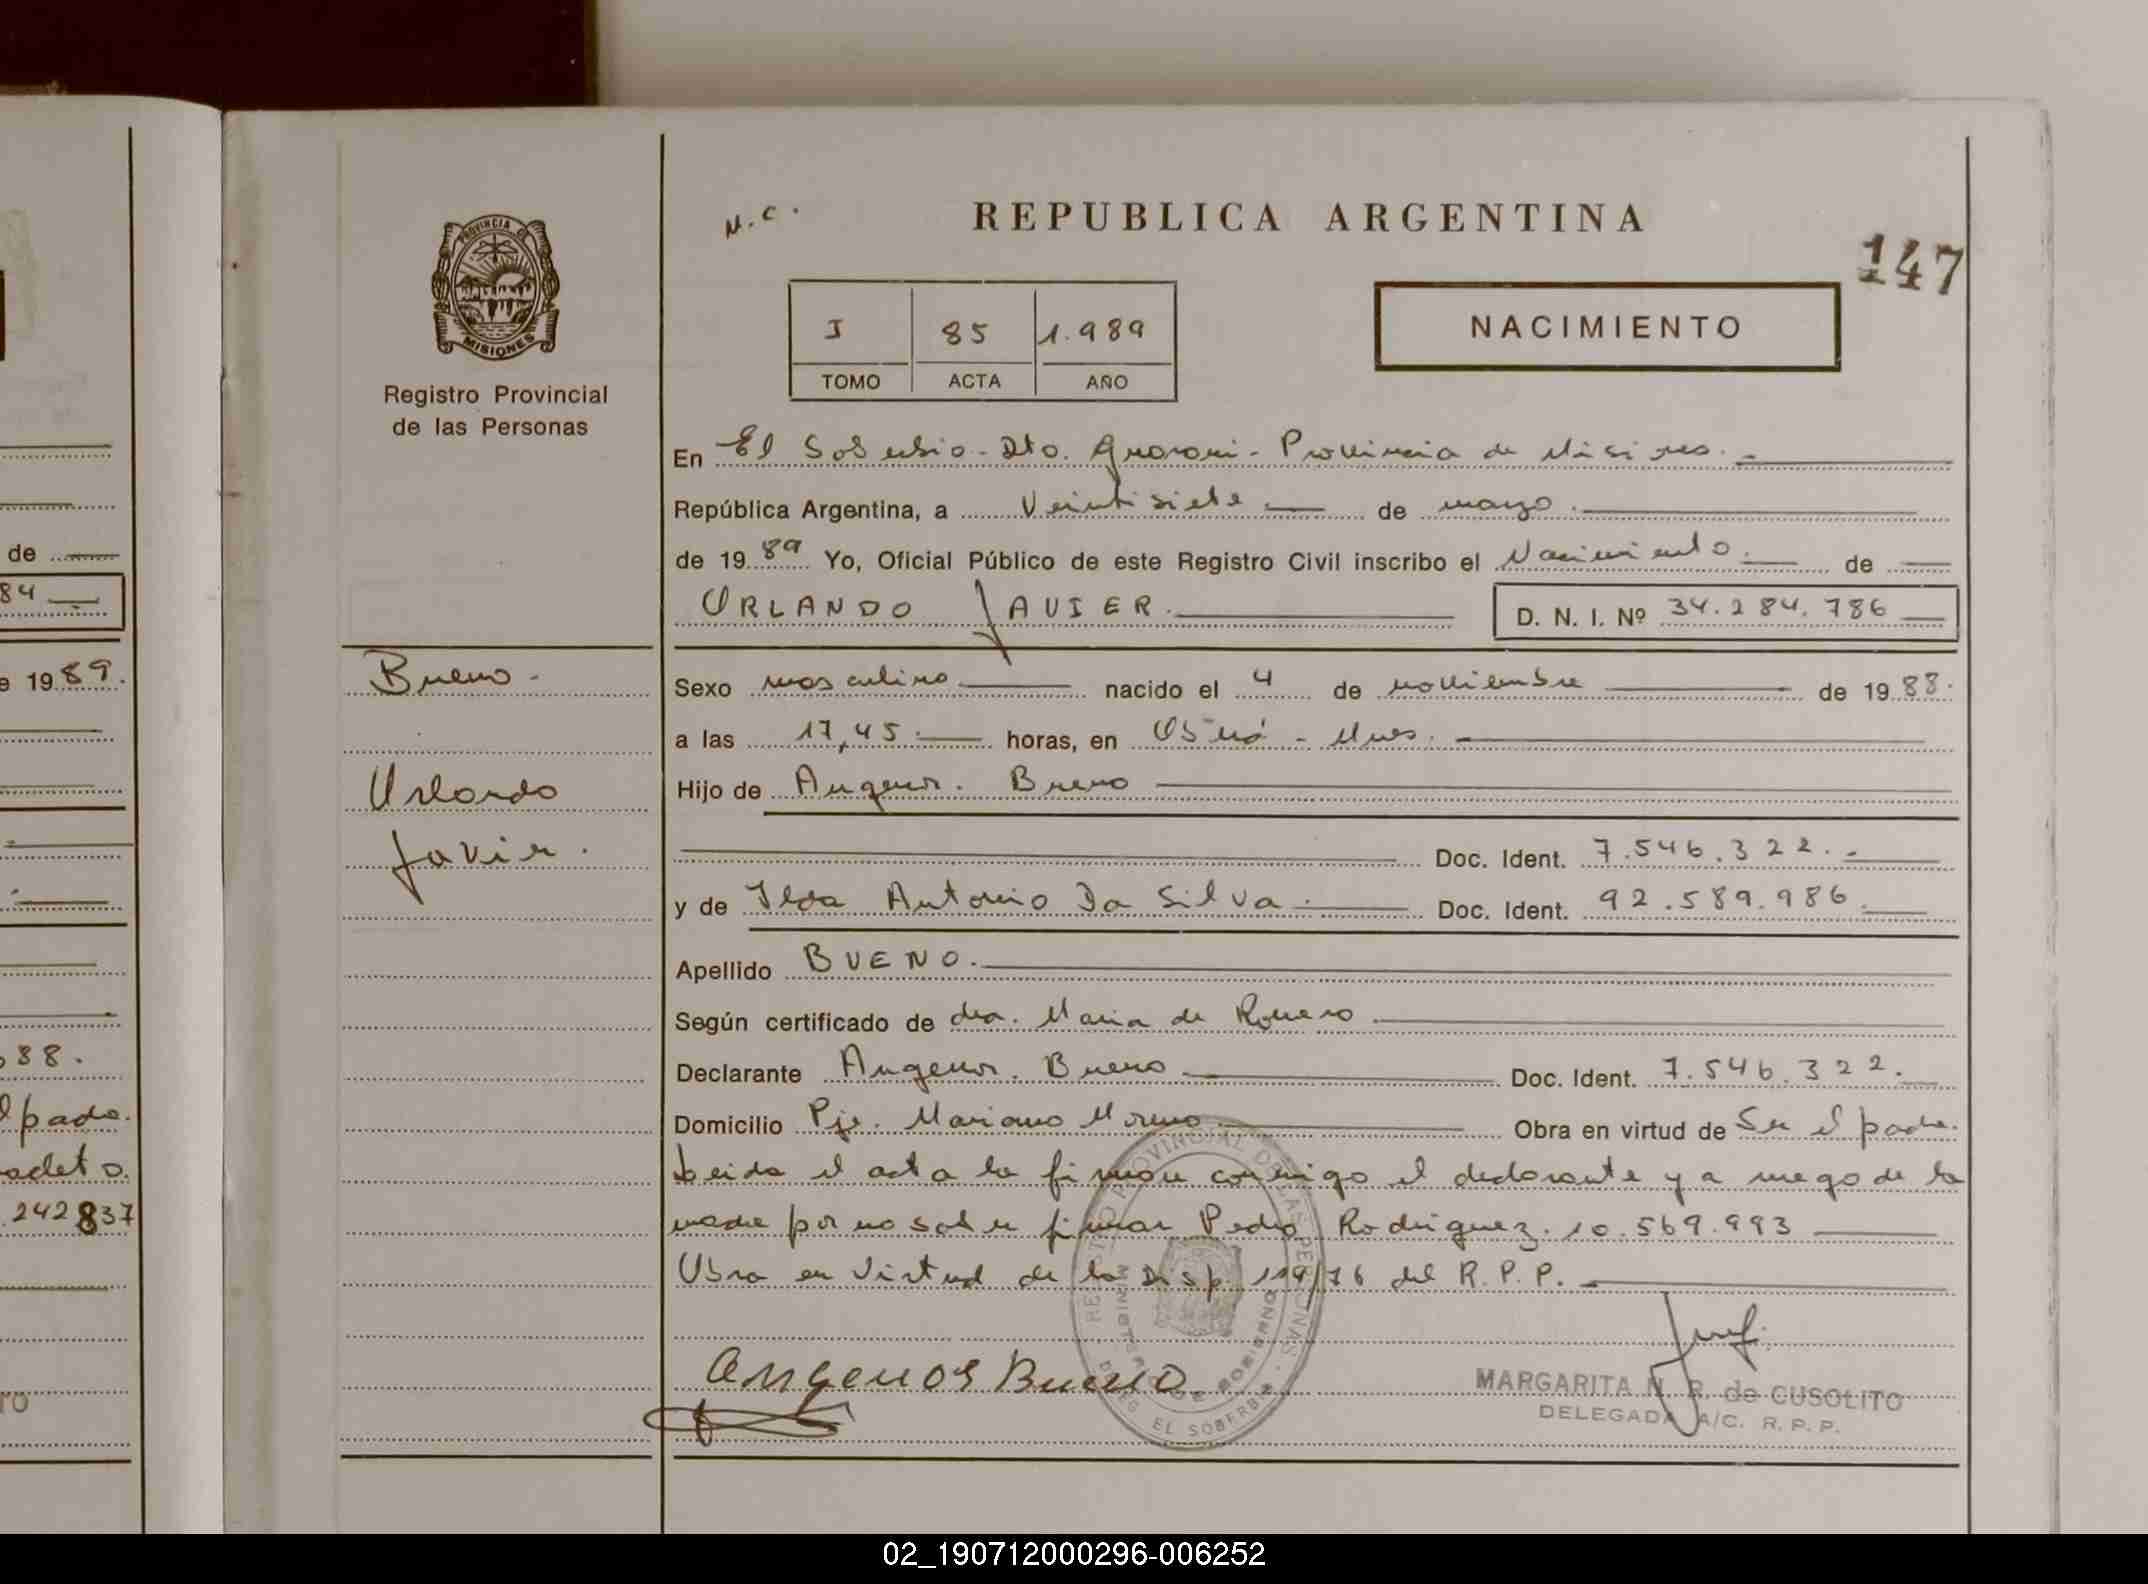 de
84
e 1989.
688.
el padre.
242837
TO
PROVINCIA DE
MISIONES
Registro Provincial
de las Personas
Bueno.
Orlando
Javier.
M.C.
REPUBLICA ARGENTINA
147
I 85 1.989
TOMO ACTA AÑO
NACIMIENTO
En El Soberbio - Dto. Guarani - Provincia de Misiones.
República Argentina, a Veintisiete de mayo.
de 1989 Yo, Oficial Público de este Registro Civil inscribo el Nacimiento. de
ORLANDO JAVIER. D. N. I. Nº 34.284.786
Sexo masculino nacido el 4 de noviembre de 1988.
a las 17,45. horas, en Oberá - Mnes.
Hijo de Angenor. Bueno
Doc. Ident. 7.546.322.
y de Ilda Antonio Da Silva. Doc. Ident. 92.589.986.
Apellido BUENO.
Según certificado de dra. Maria de Romero
Declarante Angenor. Bueno Doc. Ident. 7.546.322.
Domicilio Pje. Mariano Moreno Obra en virtud de Ser el padre.
Leida el acta la firman conmigo el declarante y a ruego de la
madre por no saber firmar Pedro Rodriguez. 10.569.993
Obra en Virtud de la Disp. 114/76 del R.P.P.
REGISTRO PROVINCIAL DE LAS PERSONAS
MINISTERIO DE GOBIERNO
DELEG. EL SOBERBIO
Angenor Bueno
MARGARITA N. R. de CUSOLITO
DELEGADA A/C. R. P. P.
02_190712000296-006252